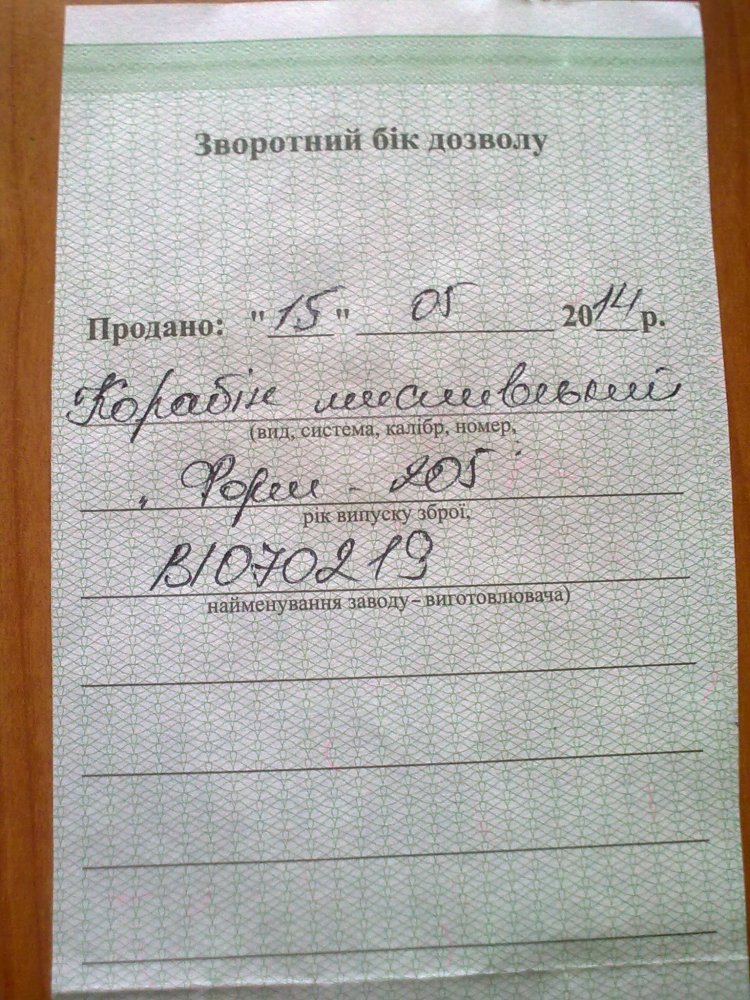 Зворотний бік дозволу
Продано: "15" 05 2014 р.
Карабін мисливський
(вид, система, калібр, номер,
"Форт - 205"
рік випуску зброї,
ВІ070219
найменування заводу – виготовлювача)